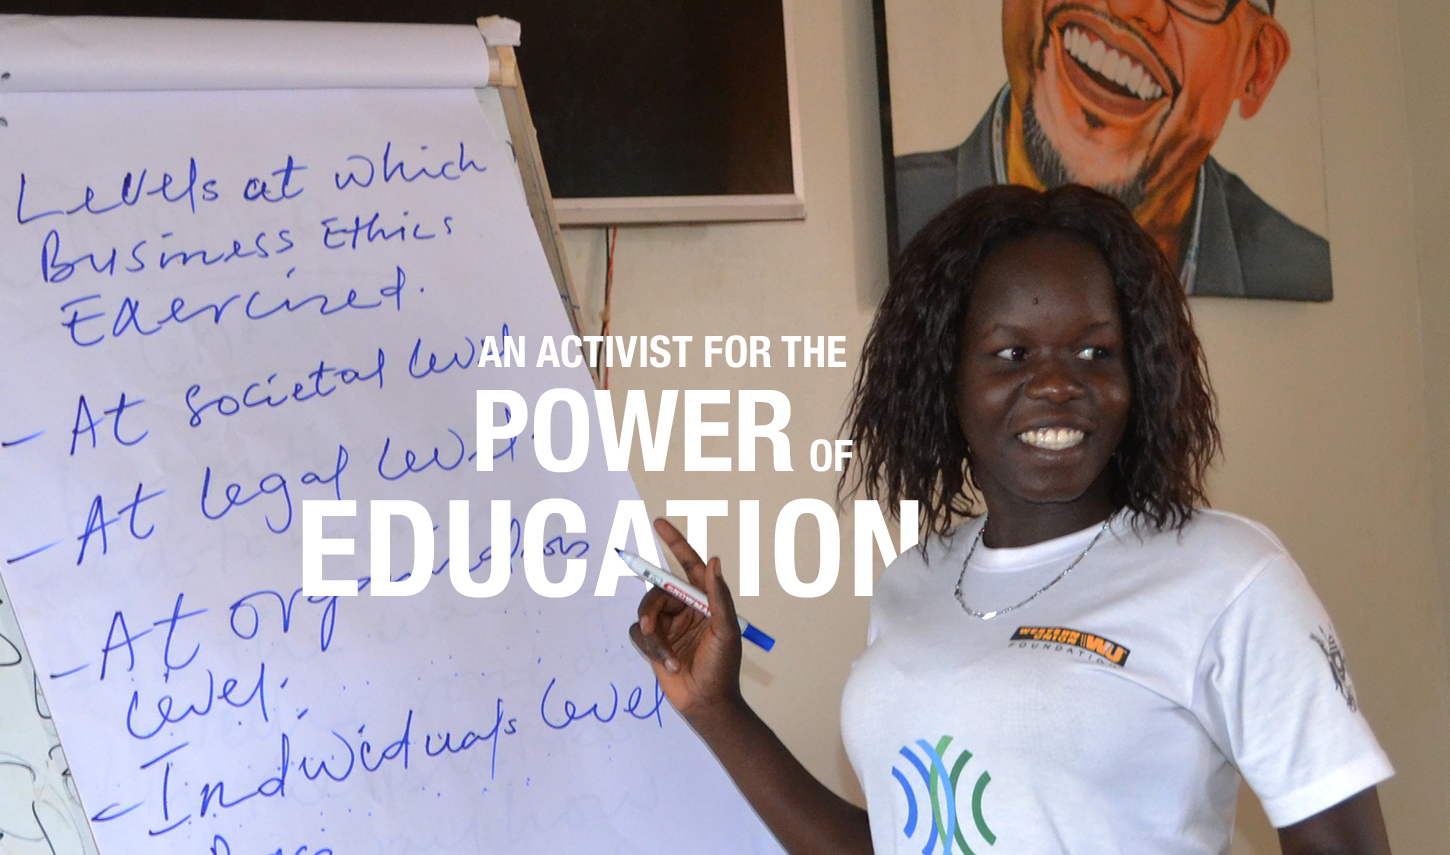 Levels at which
Business Ethics
Exercized.
- At societal level
- At legal level
- At organisation
level.
- Individuals level
AN ACTIVIST FOR THE
POWER OF
EDUCATION
SNOWMAN
WESTERN
UNION WU
FOUNDATION